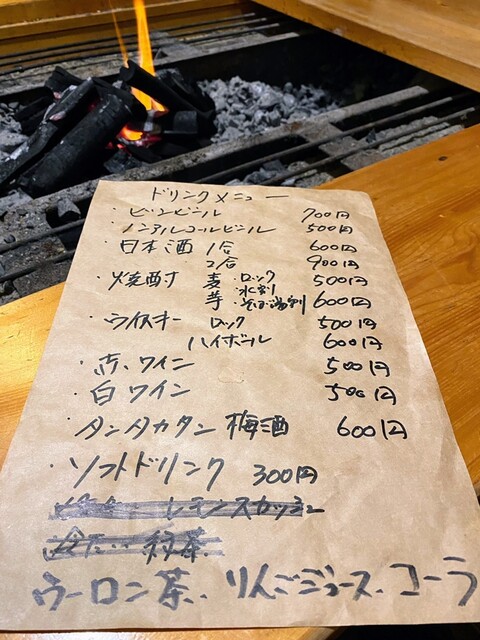 ドリンクメニュー
・ビンビール 700円
・ノンアルコールビール 500円
・日本酒 1合 600円
2合 900円
・焼酎 麦 ・ロック 500円
水割
芋 ・そば湯割 600円
・ウイスキー ロック 500円
ハイボール 600円
・赤ワイン 500円
・白ワイン 500円
・タンタカタン 梅酒 600円
・ソフトドリンク 300円
レモンスカッシュ
冷たい 紅茶
ウーロン茶、りんごジュース、コーラ